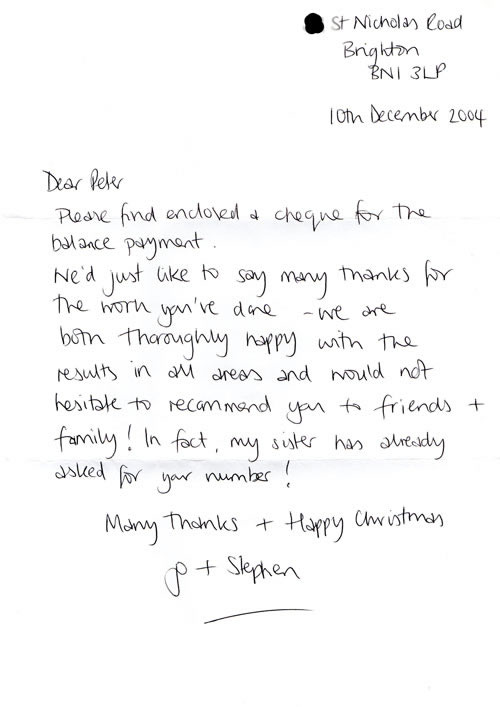 St Nicholas Road
Brighton
BN1 3LP
10th December 2004
Dear Peter
Please find enclosed a cheque for the
balance payment.
We'd just like to say many thanks for
the work you've done - we are
both thoroughly happy with the
results in all areas and would not
hesitate to recommend you to friends +
family! In fact, my sister has already
asked for your number!
Many Thanks + Happy Christmas
+ Stephen